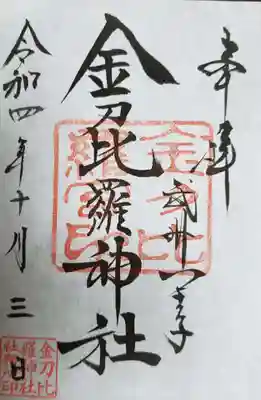 奉拝
武州八王子
金刀比羅神社
令和四年十月三日
金刀比
羅宮印
金刀比
羅神社